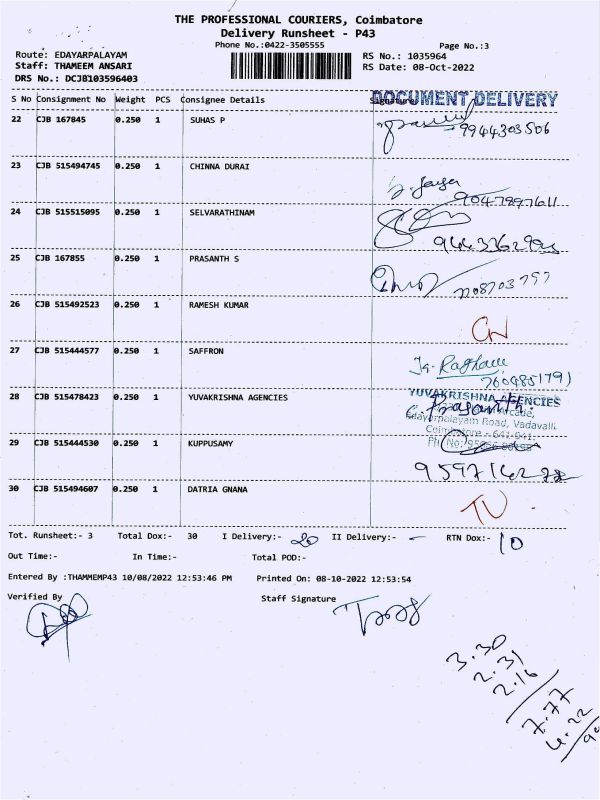 THE PROFESSIONAL COURIERS, Coimbatore
Delivery Runsheet - P43
Phone No.:0422-3505555
Page No.:3
Route: EDAYARPALAYAM
RS No.: 1035964
Staff: THAMEEM ANSARI
RS Date: 08-Oct-2022
DRS No.: DCJB103596403
S No Consignment No Weight PCS Consignee Details Signature
DOCUMENT DELIVERY
22 CJB 167845 0.250 1 SUHAS P
9944303506
23 CJB 515494745 0.250 1 CHINNA DURAI
9047997611
24 CJB 515515095 0.250 1 SELVARATHINAM
25 CJB 167855 0.250 1 PRASANTH S
26 CJB 515492523 0.250 1 RAMESH KUMAR
CN
27 CJB 515444577 0.250 1 SAFFRON
7604851791
28 CJB 515478423 0.250 1 YUVAKRISHNA AGENCIES
YUVAKRISHNA AGENCIES
Edayarpalayam Road, Vadavalli
Coimbatore - 641 041
29 CJB 515444530 0.250 1 KUPPUSAMY
Ph No:
30 CJB 515494607 0.250 1 DATRIA GNANA
Tot. Runsheet:- 3 Total Dox:- 30 I Delivery:- 20 II Delivery:- - RTN Dox:- 10
Out Time:- In Time:- Total POD:-
Entered By :THAMMEMP43 10/08/2022 12:53:46 PM Printed On: 08-10-2022 12:53:54
Verified By Staff Signature
3.30
2.31
2.16
7.77
4.22